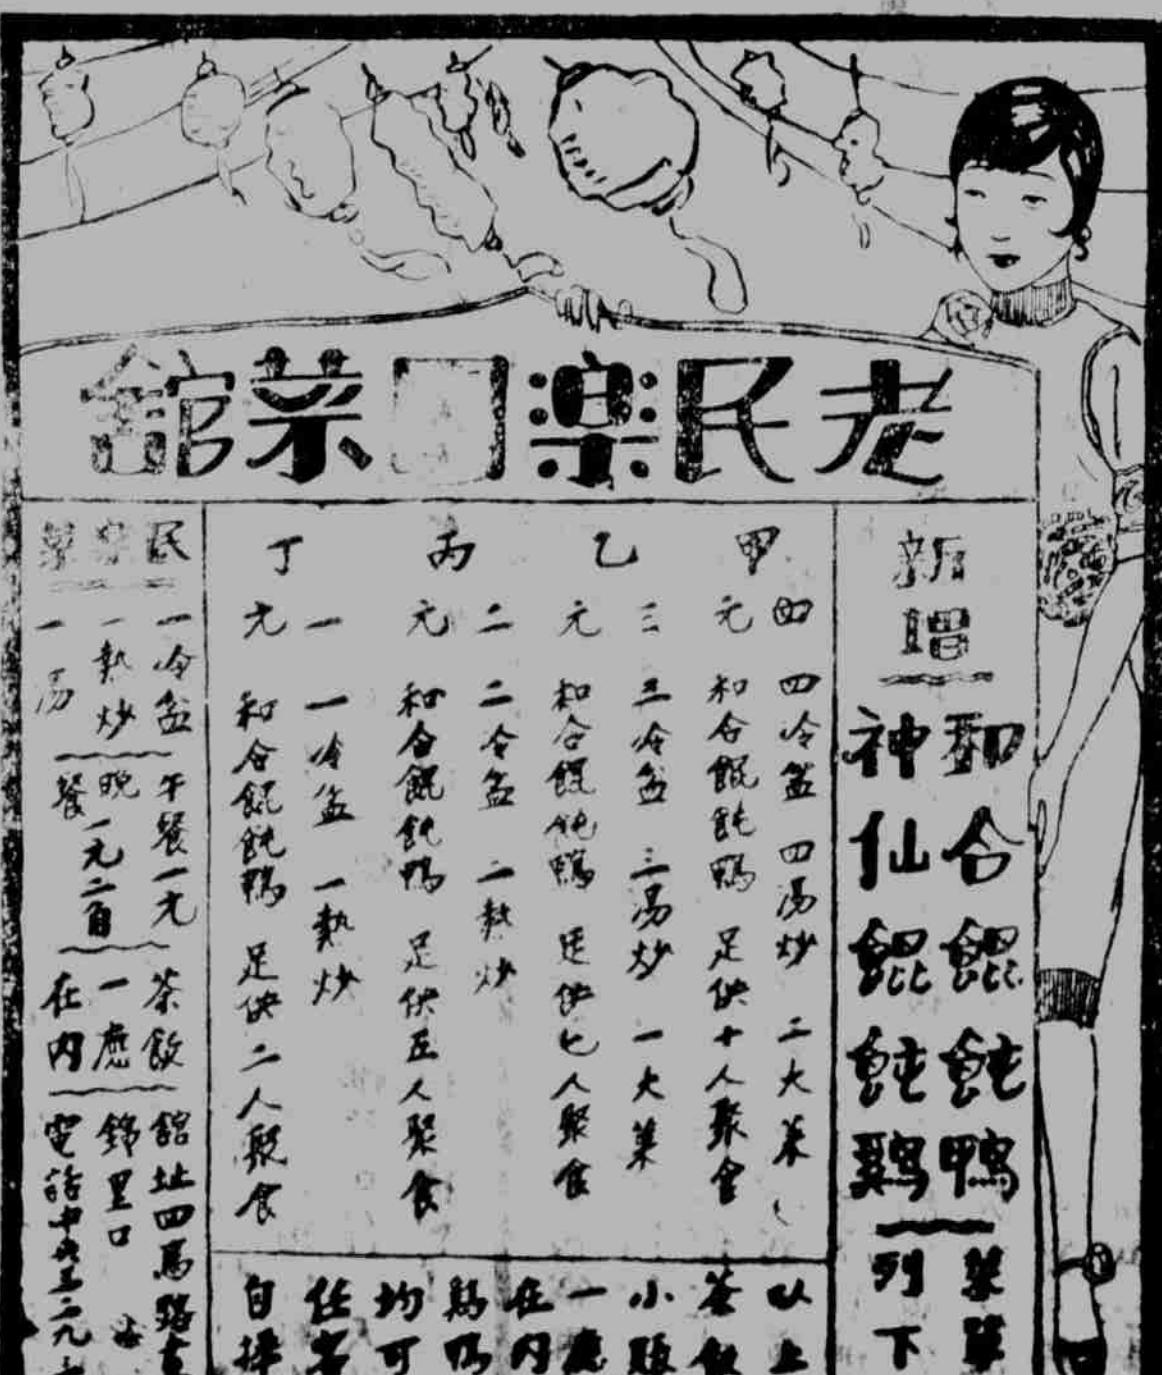 老民樂園菜館
新增
和合餛飩鴨
神仙餛飩鷄
菜單
列下
甲
四 四冷盆 四湯炒 二大菜
元 和合餛飩鴨 足供十人聚食
乙
三 三冷盆 三湯炒 一大菜
元 和合餛飩鴨 足供七人聚食
丙
二 二冷盆 二熱炒
元 和合餛飩鴨 足供五人聚食
丁
一 一冷盆 一熱炒
元 和合餛飩鴨 足供二人聚食
以上
茶飯
小賬
一應
在內
鷄鴨
均可
任客
自擇
民樂菜
一冷盆
一熱炒
一湯
午餐一元
晚餐一元二角
茶飯
一應
在內
館址四馬路
錦里口
電話中央三二九